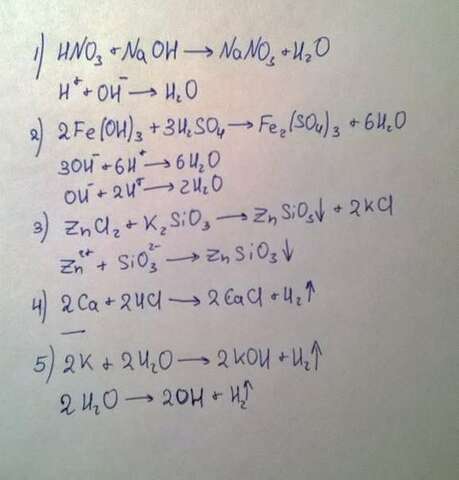 1) HNO₃ + NaOH → NaNO₃ + H₂O
H⁺ + OH⁻ → H₂O
2) 2Fe(OH)₃ + 3H₂SO₄ → Fe₂(SO₄)₃ + 6H₂O
3OH⁻ + 6H⁺ → 6H₂O
OH⁻ + 2H⁺ → 2H₂O
3) ZnCl₂ + K₂SiO₃ → ZnSiO₃↓ + 2KCl
Zn²⁺ + SiO₃²⁻ → ZnSiO₃↓
4) 2Ca + 2HCl → 2CaCl + H₂↑
—
5) 2K + 2H₂O → 2KOH + H₂↑
2H₂O → 2OH + H₂↑